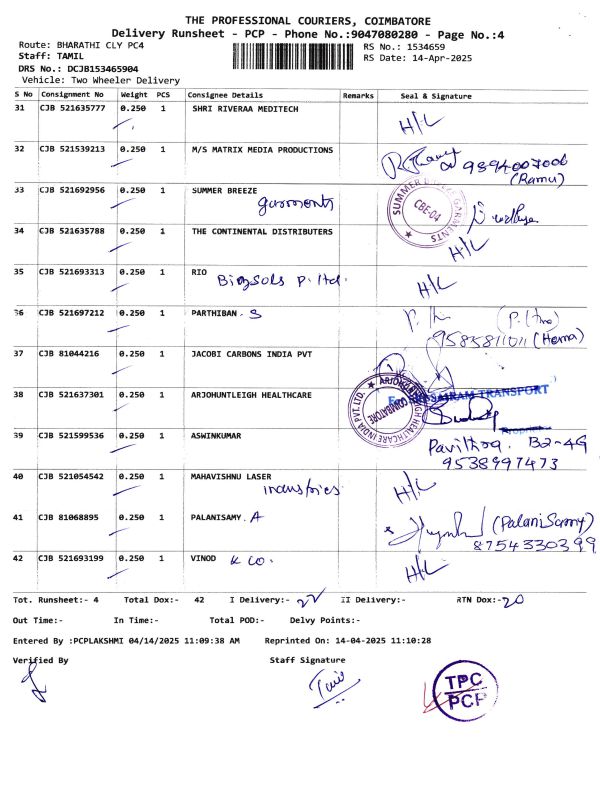 THE PROFESSIONAL COURIERS, COIMBATORE
Delivery Runsheet - PCP - Phone No.:9047080280 - Page No.:4
Route: BHARATHI CLY PC4 RS No.: 1534659
Staff: TAMIL RS Date: 14-Apr-2025
DRS No.: DCJB153465904
Vehicle: Two Wheeler Delivery
S No Consignment No Weight PCS Consignee Details Remarks Seal & Signature
31 CJB 521635777 0.250 1 SHRI RIVERAA MEDITECH
H/L
32 CJB 521539213 0.250 1 M/S MATRIX MEDIA PRODUCTIONS
9894007006
(Ramu)
33 CJB 521692956 0.250 1 SUMMER BREEZE
garments
SUMMER BREEZE GARMENTS
CBE-04
34 CJB 521635788 0.250 1 THE CONTINENTAL DISTRIBUTERS
H/L
35 CJB 521693313 0.250 1 RIO
Bioggols P. ltd.
H/L
36 CJB 521697212 0.250 1 PARTHIBAN. S
(Hema)
37 CJB 81044216 0.250 1 JACOBI CARBONS INDIA PVT
38 CJB 521637301 0.250 1 ARJOHUNTLEIGH HEALTHCARE
ARJOHUNTLEIGH HEALTHCARE INDIA PVT. LTD.
COIMBATORE
TRANSPORT
39 CJB 521599536 0.250 1 ASWINKUMAR
Pavithra. B2-4G
9538997473
40 CJB 521054542 0.250 1 MAHAVISHNU LASER
industries
H/L
41 CJB 81068895 0.250 1 PALANISAMY. A
(PalaniSamy)
8754330399
42 CJB 521693199 0.250 1 VINOD K CO.
H/L
Tot. Runsheet:- 4 Total Dox:- 42 I Delivery:- 22 II Delivery:- RTN Dox:- 20
Out Time:- In Time:- Total POD:- Delvy Points:-
Entered By :PCPLAKSHMI 04/14/2025 11:09:38 AM Reprinted On: 14-04-2025 11:10:28
Verified By Staff Signature
TPC
PCP